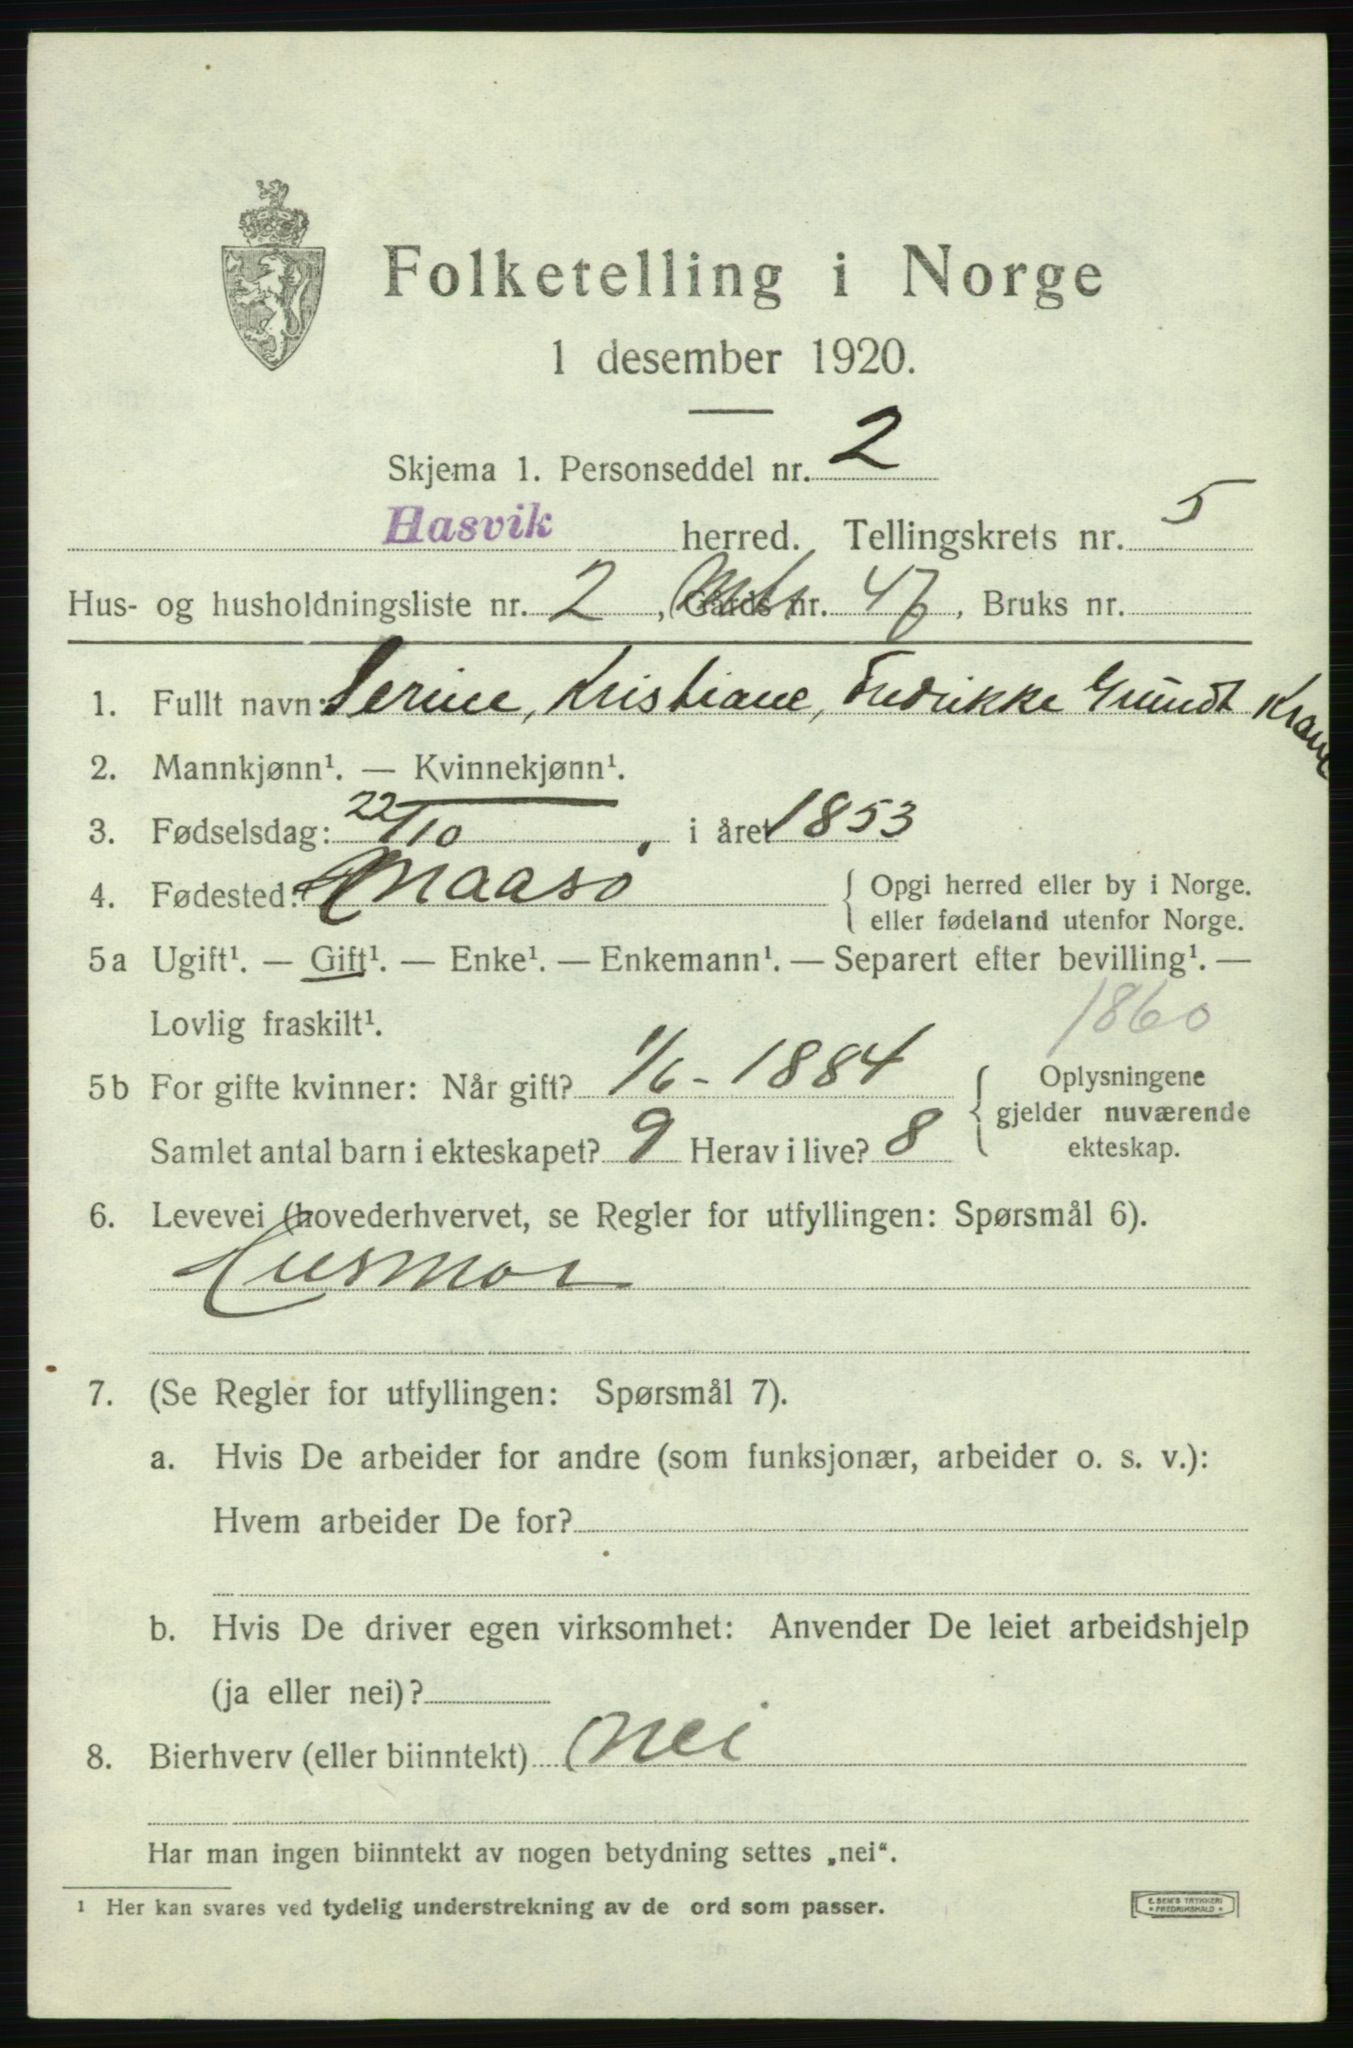 Folketelling i Norge
1 desember 1920.
Skjema 1. Personseddel nr. 2
Hasvik herred. Tellingskrets nr. 5
Hus- og husholdningsliste nr. 2, Gards nr. 47, Bruks nr.
1. Fullt navn: Serine, Kristiane, Fredrikke Grundt Krane
2. Mannkjønn¹. — Kvinnekjønn¹.
3. Fødselsdag: 22/10, i året 1853
4. Fødested: Maasø { Opgi herred eller by i Norge.
eller fødeland utenfor Norge.
5a Ugift¹. — Gift¹. — Enke¹. — Enkemann¹. — Separert efter bevilling¹. —
Lovlig fraskilt¹.
1860
5b For gifte kvinner: Når gift? 1/6 - 1884 { Oplysningene
gjelder nuværende
Samlet antal barn i ekteskapet? 9 Herav i live? 8 ekteskap.
6. Levevei (hovederhvervet, se Regler for utfyllingen: Spørsmål 6).
Husmor
7. (Se Regler for utfyllingen: Spørsmål 7).
a. Hvis De arbeider for andre (som funksjonær, arbeider o. s. v.):
Hvem arbeider De for?
b. Hvis De driver egen virksomhet: Anvender De leiet arbeidshjelp
(ja eller nei)?
8. Bierhverv (eller biinntekt) nei
Har man ingen biinntekt av nogen betydning settes „nei“.
¹ Her kan svares ved tydelig understrekning av de ord som passer.
E. SEM'S TRYKKERI
• FREDRIKSHALD •